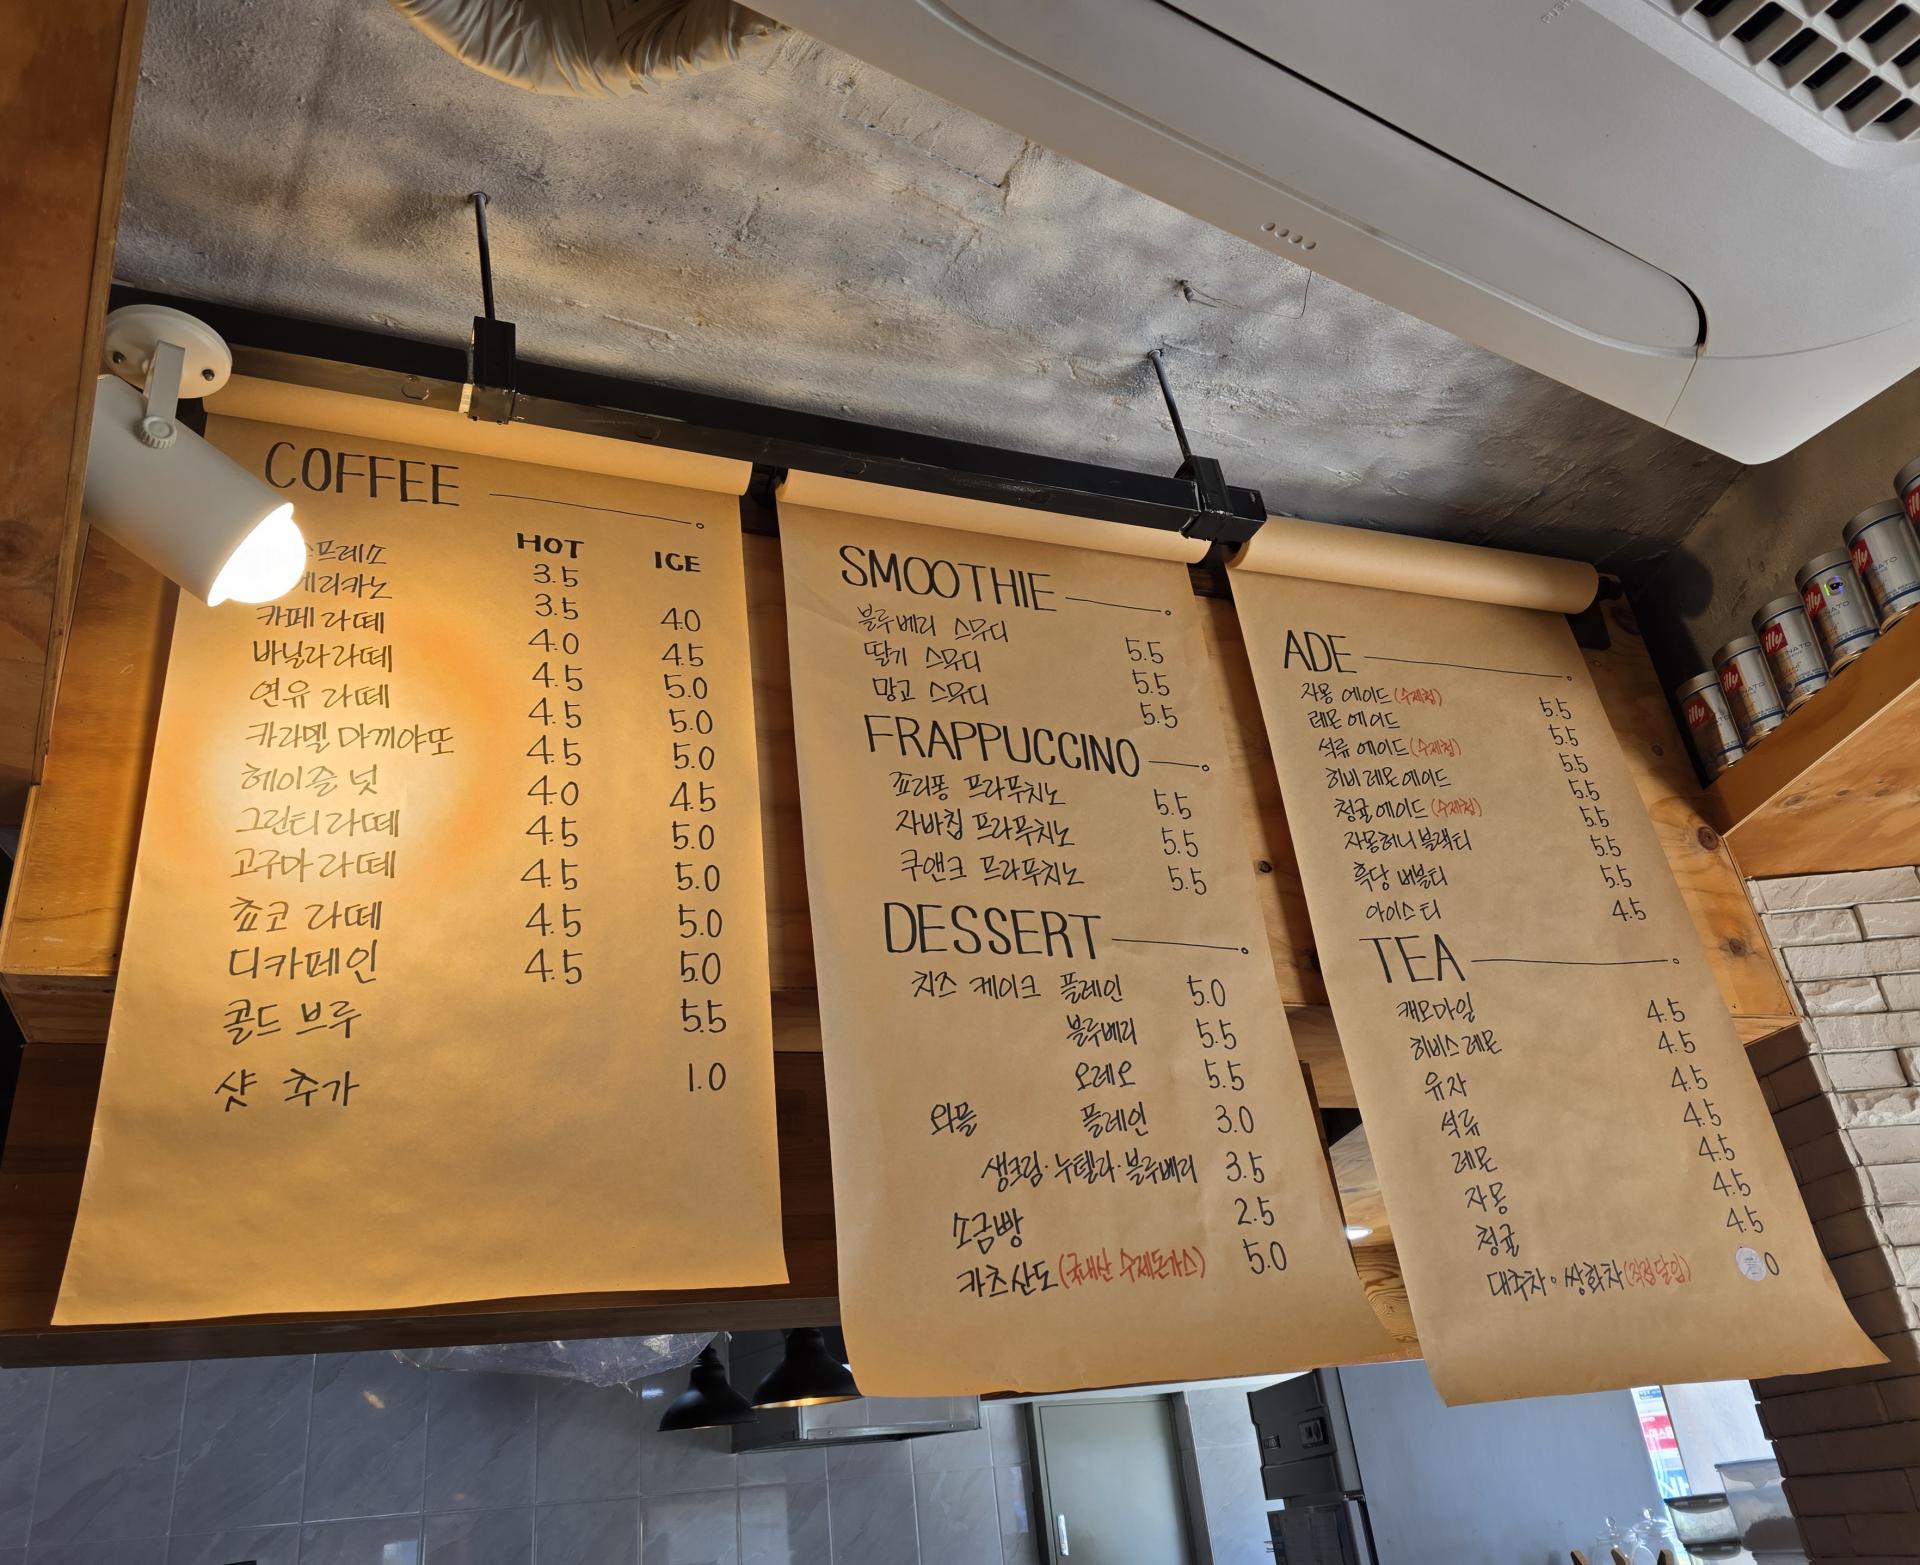 COFFEE
HOT ICE
스프레소 3.5
메리카노 3.5 4.0
카페라떼 4.0 4.5
바닐라라떼 4.5 5.0
연유 라떼 4.5 5.0
카라멜 마끼야또 4.5 5.0
헤이즐 넛 4.0 4.5
그린티라떼 4.5 5.0
고구마라떼 4.5 5.0
쵸코 라떼 4.5 5.0
디카페인 4.5 5.0
콜드 브루 5.5
샷 추가 1.0
SMOOTHIE
블루베리 스무디 5.5
딸기 스무디 5.5
망고 스무디 5.5
FRAPPUCCINO
쵸리퐁 프라푸치노 5.5
자바칩 프라푸치노 5.5
쿠앤크 프라푸치노 5.5
DESSERT
치즈 케이크 플레인 5.0
블루베리 5.5
오레오 5.5
와플 플레인 3.0
생크림·누텔라·블루베리 3.5
소금빵 2.5
카츠산도(국내산 수제돈가스) 5.0
ADE
자몽 에이드(수제청) 5.5
레몬에이드 5.5
석류 에이드(수제청) 5.5
히비레몬에이드 5.5
청귤에이드(수제청) 5.5
자몽허니블랙티 5.5
흑당 버블티 5.5
아이스티 4.5
TEA
캐모마일 4.5
히비스레몬 4.5
유자 4.5
석류 4.5
레몬 4.5
자몽 4.5
청귤 4.5
대추차·쌍화차(직접달임) 0
illy
illy
illy
illy
illy
illy